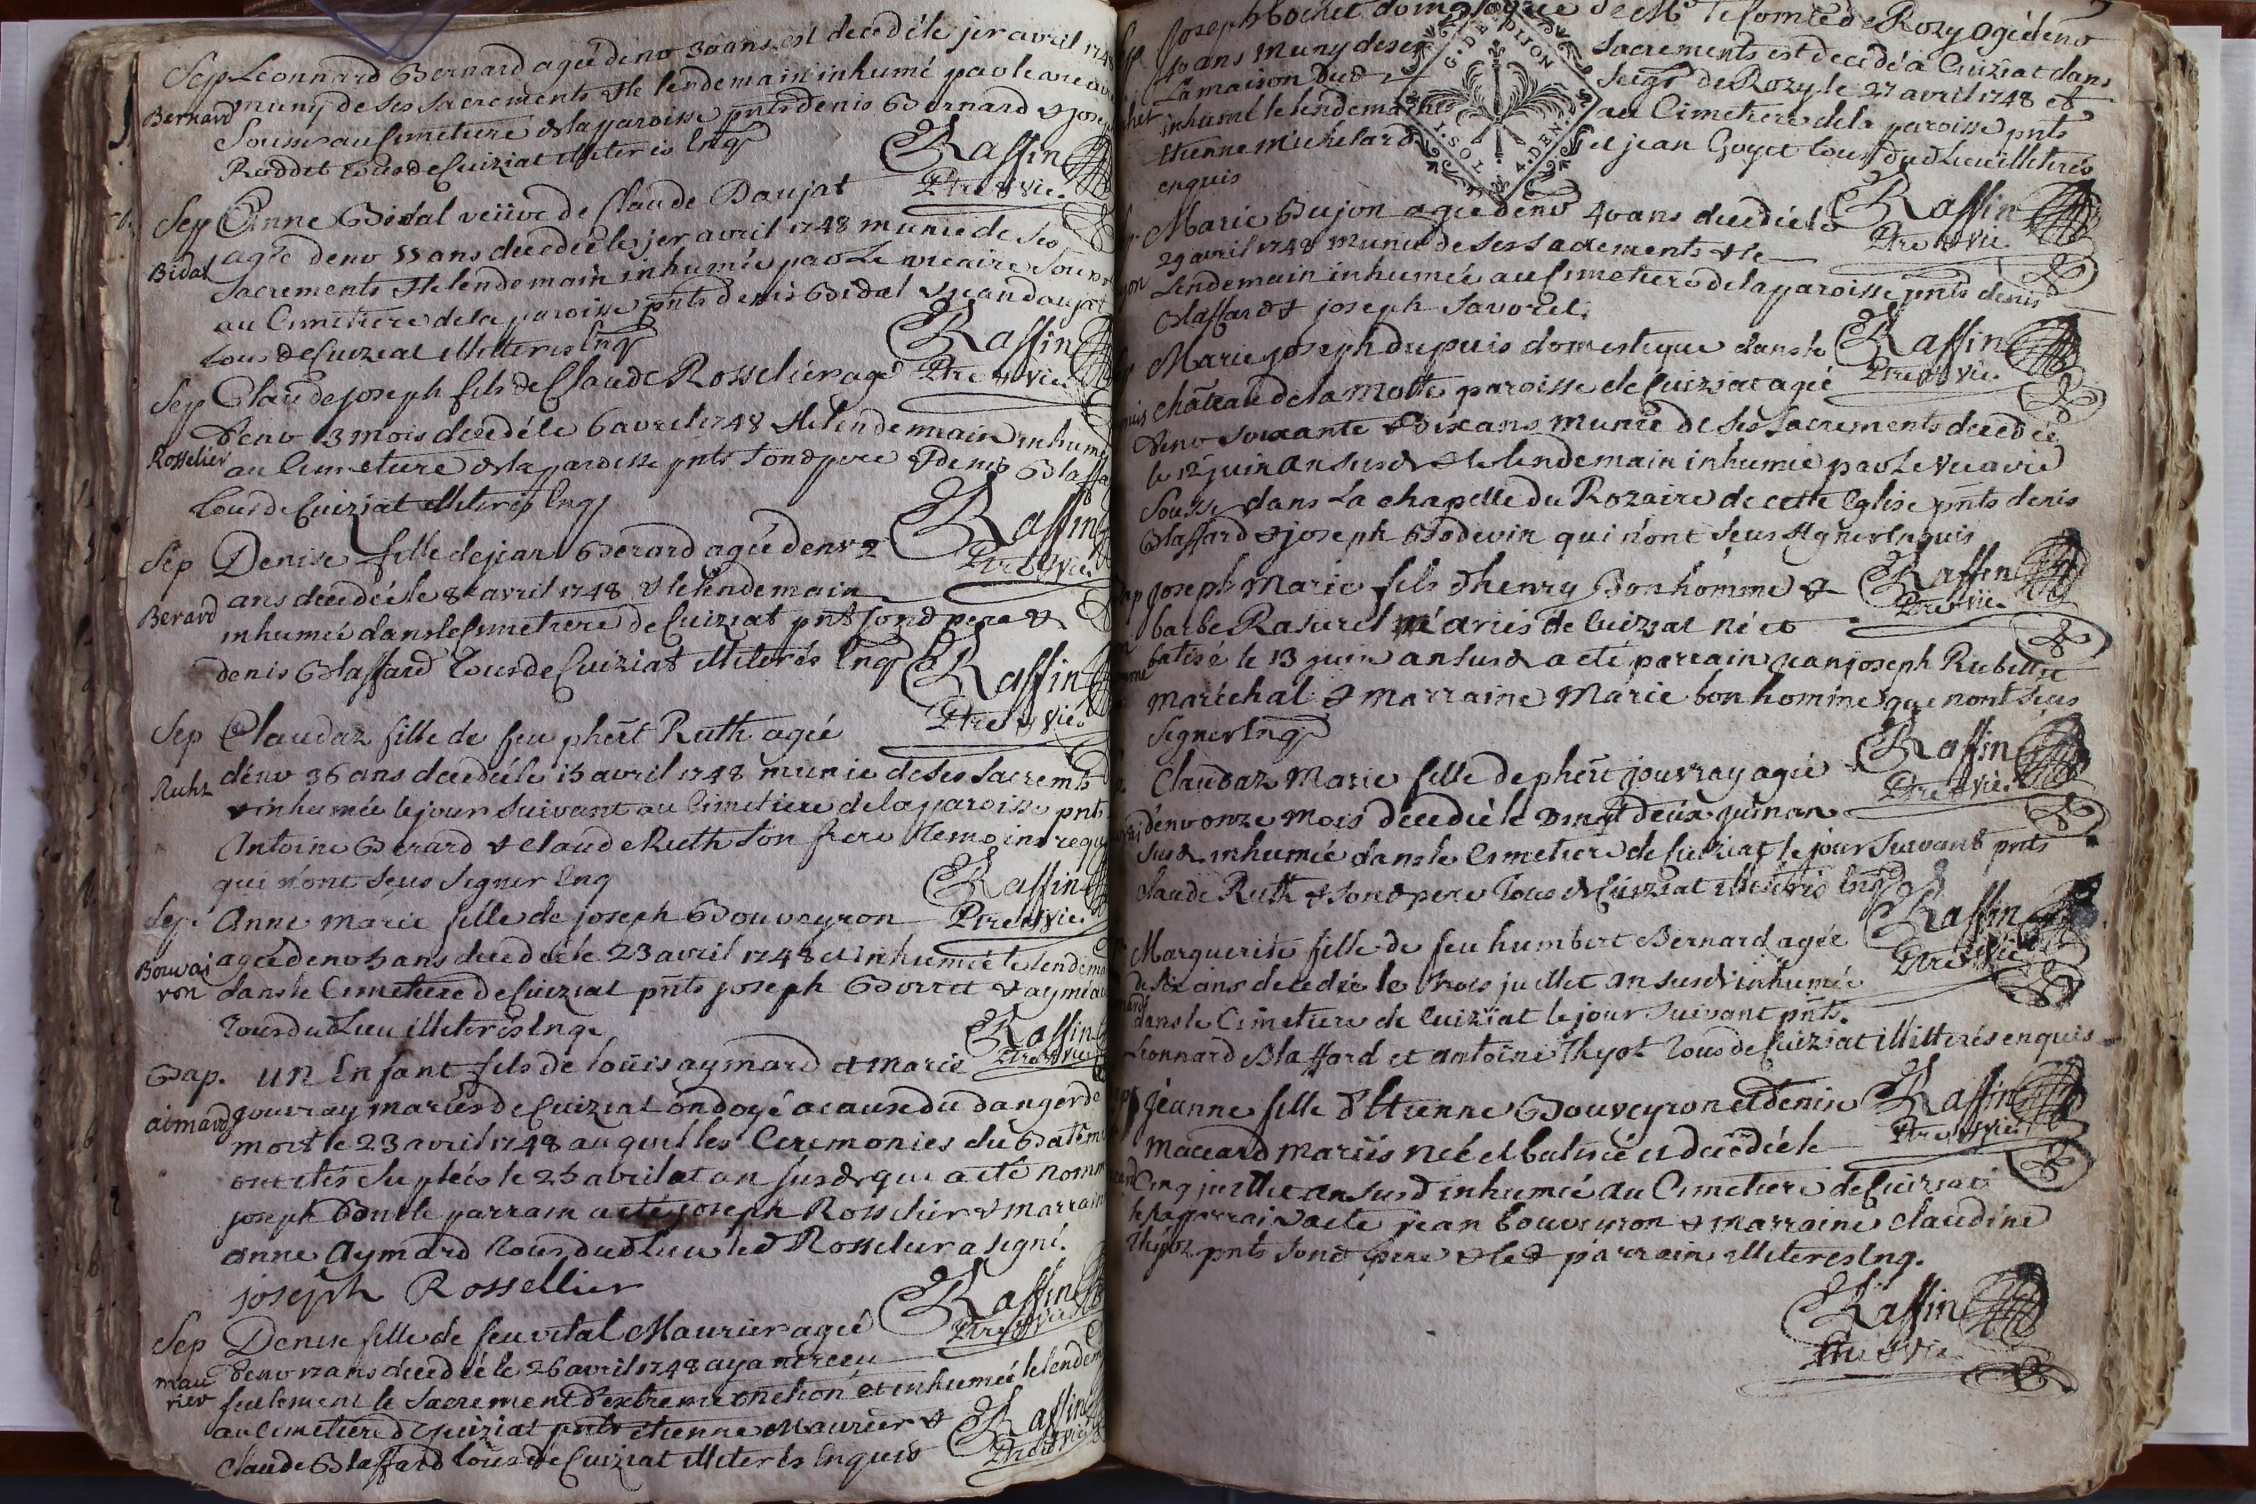 Sep Leonnard Bernard agé denv 30 ans est decedé le jer avril 1748
Bernard muny de ses sacrements & le lendemain inhumé par le vicaire
Soussé au cimetiere de la paroisse pnts denis Bernard & joseph
Roddet tous de Cuiziat illiteres Enq
Raffin
Ptre & vic.
Sep Anne Bidal veüve de Claude Daujat
Bidal agée denv 55 ans decedée le jer avril 1748 munie de ses
sacrements & le lendemain inhumée par Le vicaire Sou
au Cimetiere de la paroisse pnts denis Bidal & jean daujat
tous de Cuiziat illiteres Enq
Raffin
Ptre & vic.
Sep Claude joseph fils de Claude Rosselier agé
denv 3 mois decedé le 6 avril 1748 & le lendemain inhumé
Rosselier au Cimetiere de la paroisse pnts sond pere & denis Blaffa
tous de Cuiziat illiteres Enq
Raffin
Ptre & vic.
Sep Denise fille de jean Berard agée denv 2
Berard ans decedée le 8 avril 1748 & le lendemain
inhumée dans le Cimetiere de Cuiziat pnts sond pere &
denis Blaffard tous de Cuiziat illiterés Enq
Raffin
Ptre & vic.
Sep Claudaz fille de feu phert Ruth agée
Ruht denv 36 ans decedée le 15 avril 1748 munie de ses sacremts
& inhumée le jour suivant au Cimetiere de la paroisse pnts
Antoine Berard & claude Ruth son frere temoins requ
qui n'ont seus signer Enq
Raffin
Ptre & vic.
Sep. Anne marie fille de joseph Bouveyron
Bouvai agée denv 5 ans decedée le 23 avril 1748 et inhumée le lendem
ron dans le Cimetiere de Cuiziat pnts joseph Borret & aymé
tous dud Lieu illiterés Enq.
Raffin
Ptre & vic.
Bap. un Enfant fils de loüis aymard et marie
aimard jouvray mariés de Cuiziat ondoyé a cause du danger de
mort le 23 avril 1748 auquel les Ceremonies du Batême
ont etés supleés le 25 avril et an susd & qui a eté nommé
joseph parrain a eté joseph Rosselier & marraine
anne Aymard tous dud Lieu led Rosselier a signé.
joseph Rossellier
Raffin
Ptre & vic.
Sep Denise fille de feu vital Maurier agée
mau denv ans decedée le 26 avril 1748 ayant receu
rier seulement le sacrement d'extreme onction et inhumée le lendem
au cimetiere de Cuiziat pnts etienne Maurier &
Claude Blaffard tous de Cuiziat illiterés Enquis
Raffin
Ptre & vic.
joseph bochet domestique de Mr le Comte de Rozy agé denv
40 ans muny de ses sacrements est decedé a Cuiziat dans
La maison dud seigr de Rozy le 27 avril 1748 et
inhumé le lendemain au Cimetiere de la paroisse pnts
etienne michelard et jean Goyet tous dud Lieu illiterés
enquis
G. DE DIJON
I. SOL 4. DEN.
Raffin
Ptre & vic.
Marie Bujon agée denv 40 ans decedée le
29 avril 1748 munie de ses sacrements & le
Lendemain inhumée au Cimetiere de la paroisse pnts denis
Blaffard & joseph Savorel.
Raffin
Ptre & vic.
Marie joseph dupuis domestique dans le
château de la Motte paroisse de Cuiziat agée
denv soixante & dix ans munie de ses sacrements decedée
le 12 juin an susd & le lendemain inhumée par Le vicaire
Soussé dans La chapelle du Rozaire de cette Eglise pnts denis
Blaffard & joseph Bodevin qui n'ont seus signer Enquis
Raffin
Ptre & vic.
joseph marie fils d'henry Bonhomme &
barbe Rasurel mariés de Cuiziat né et
batisé le 13 juin an susd a eté parrain jean joseph Rubellin
maréchal & marraine Marie bonhomme qui n'ont seus
signer Enq
Raffin
Ptre & vic.
Claudaz Marie fille de phert jouvray agée
denv onze mois decedée le vingt deux juin an
susd inhumée dans le Cimetiere de Cuiziat le jour suivant pnts
Claude Ruth & sond pere tous de Cuiziat illiterés Enq
Raffin
Ptre & vic.
Marguerite fille de feu humbert Bernard agée
de six ans decedée le trois juillet an susd inhumée
dans le Cimetiere de Cuiziat le jour suivant pnts.
Leonnard Blaffard et antoine Thyot tous de Cuiziat illitterés enquis
Raffin
Ptre & vic.
jeanne fille d'Etienne Bouveyron et denise
Maccard mariés neé et batisée et decedée le
Cinq juillet an susd inhumée au Cimetiere de Cuiziat
le parrain a eté jean bouveyron & marraine claudine
Thyoz pnts sond pere & led parrain illiteres Enq.
Raffin
Ptre & vic.